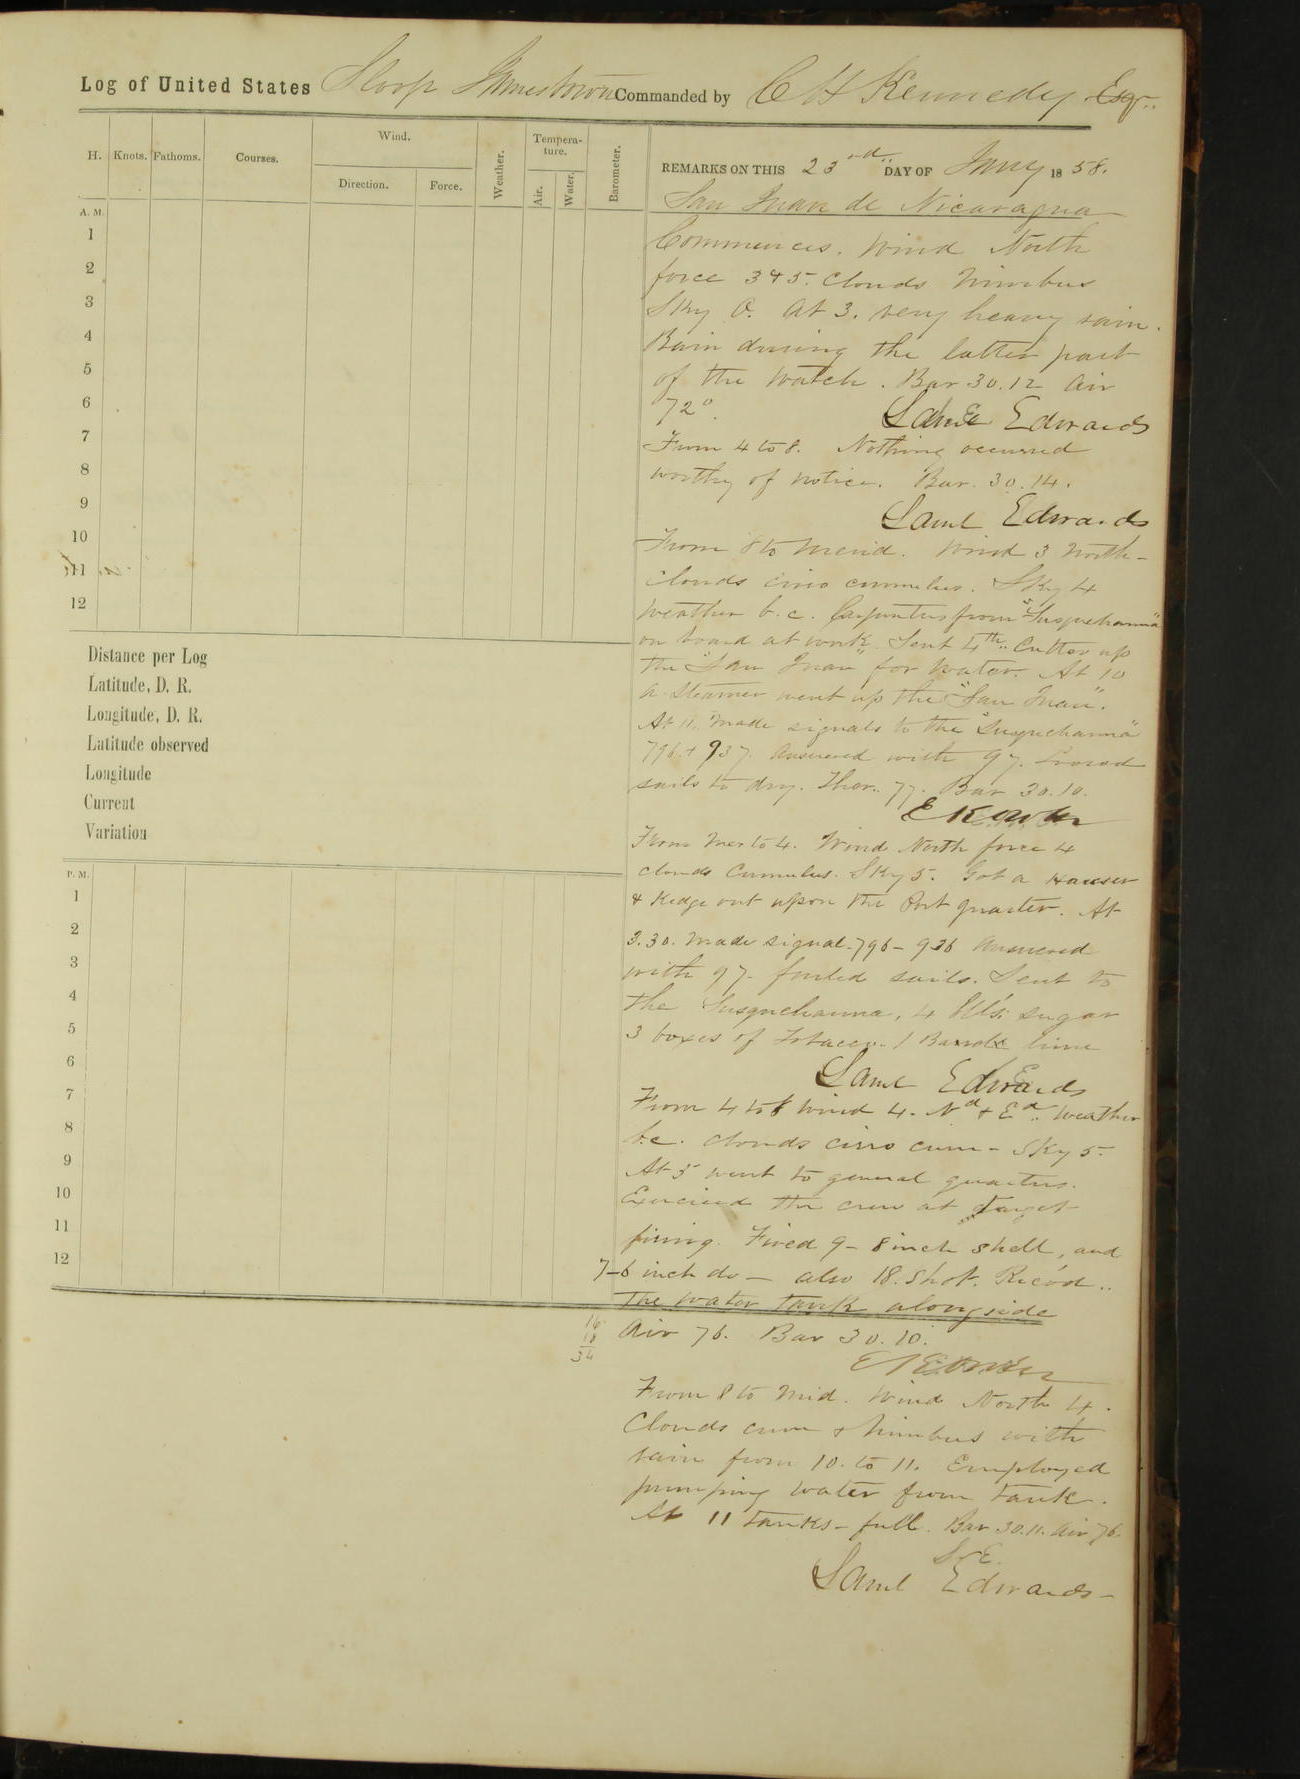 Log of United States Sloop Jamestown Commanded by C H Kennedy Esqr..
H. Knots. Fathoms. Courses. Wind. Direction. Force. Weather. Tempera-ture. Air. Water. Barometer.
REMARKS ON THIS 23rd.. DAY OF Jany 1858.
San Juan de Nicaragua
A. M.
1
2
3
4
5
6
7
8
9
10
11
12
Distance per Log
Latitude, D. R.
Longitude, D. R.
Latitude observed
Longitude
Current
Variation
P. M.
1
2
3
4
5
6
7
8
9
10
11
12
Commences. Wind North
force 3 & 5. Clouds Nimbus
Sky 0. At 3. very heavy rain.
Rain during the latter part
of the Watch. Bar 30.12 Air
72°.
Saml Edwards
From 4 to 8. Nothing occurred
worthy of notice. Bar. 30.14.
Saml Edwards
From 8 to Merid. Wind 3 North-
clouds cirro cumulus. Sky 4
Weather b.c. Carpenters from "Susquehanna"
on board at work. Sent 4th.. Cutter up
the "San Juan" for Water. At 10
a steamer went up the "San Juan".
At 11. made signals to the "Susquehanna"
796 + 937. answered with 97. Loosed
sails to dry. Ther.. 77. Bar 30.10.
From Mer to 4. Wind North force 4
clouds Cumulus. Sky 5. Got a Hawser
& Kedge out upon the Port quarter. At
3.30. made signal 796 - 936 Answered
with 97- furled sails. Sent to
the Susquehanna, 4 bbls. sugar
3 boxes of Tobacco. 1 Barrel lime
Saml Edwards
From 4 to 8 Wind 4. Nd & Ed.. Weather
b.c. clouds cirro cum - Sky 5-
At 5 went to general quarters.
Exercised the crew at target
firing. Fired 9 - 8 inch shell, and
7-6 inch do - also 18. Shot. Recd..
The water tank alongside
16
18
34
Air 76. Bar 30.10.
From 8 to Mid. Wind North 4.
Clouds cum & Nimbus with
rain from 10. to 11. Employed
pumping water from tank.
At 11 tanks - full. Bar 30.11. Air 76.
S. E.
Saml Edwards-